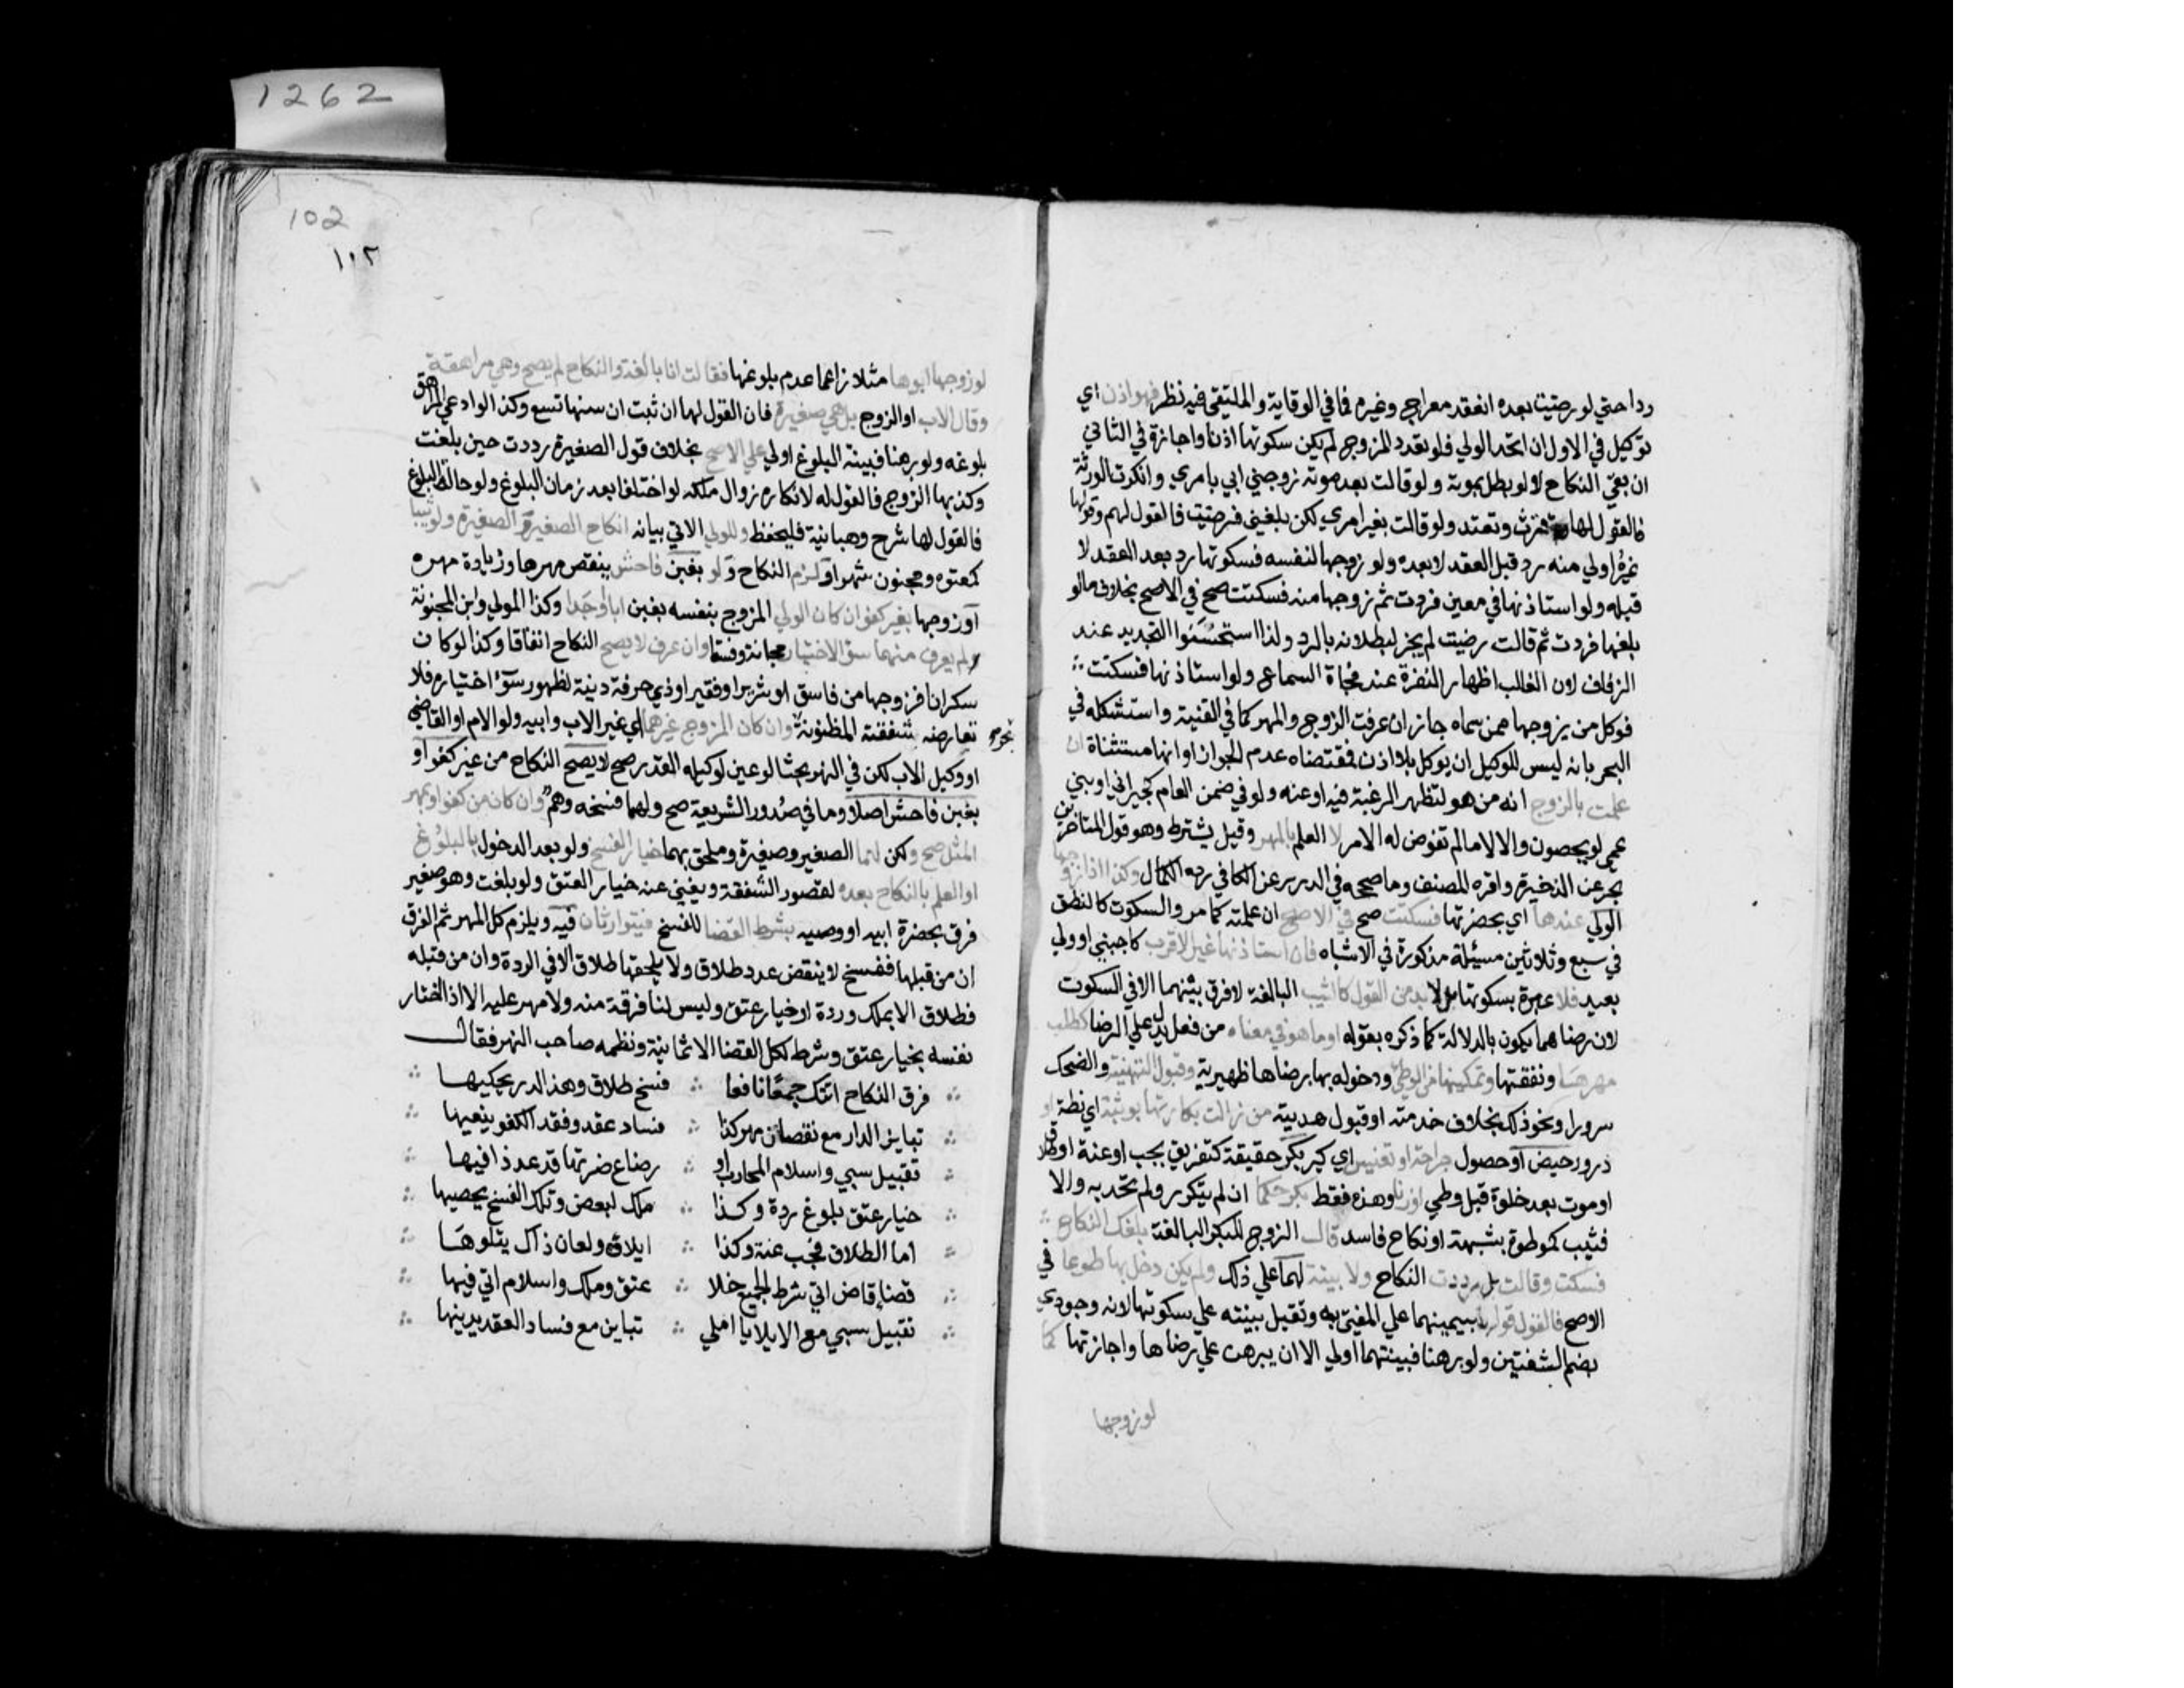 ردا حتي لو رضيت بعده انعقد معراج وغيره فما في الوقاية والملتقي فيه نظر فهو اذن اي
توكيل في الاول ان اتحد الولي فلو تعدد المزوج لم يكن سكوتها اذنا واجازة في الثاني
ان بقي النكاح لا لو بطل بموته ولو قالت بعد موته زوجني ابي بامري وانكرت الورثة
فالقول لها فترث وتعتد ولو قالت بغير امري لكن بلغني فرضيت فالقول لهم وقولها
غيره اولي منه رد قبل العقد لا بعده ولو زوجها لنفسه فسكوتها رد بعد العقد لا
قبله ولو استاذنها في معين فردت ثم زوجها منه فسكتت صح في الاصح بخلاف ما لو
بلغها فردت ثم قالت رضيت لم يجز لبطلانه بالرد ولذا استحسنوا التجديد عند
الزفاف لان الغالب اظهار النفرة عند فجاة السماع ولو استاذنها فسكتت
فوكل من يزوجها ممن سماه جاز ان عرفت الزوج والمهر كما في القنية واستشكله في
البحر بانه ليس للوكيل ان يوكل بلا اذن فمقتضاه عدم الجواز او انها مستثناة ان
علمت بالزوج انه من هو لتظهر الرغبة فيه او عنه ولو في ضمن العام كجيراني او بني
عمي لو يحصون والا لا ما لم تفوض له الامر لا العلم بالمهر وقيل يشترط وهو قول المتاخرين
بحر عن الذخيرة واقره المصنف وما صححه في الدرر عن الكافي رده الكمال وكذا اذا زوجها
الولي عندها اي بحضرتها فسكتت صح في الاصح ان علمته كما مر والسكوت كالنطق
في سبع وثلاثين مسئلة مذكورة في الاشباه فان استاذنها غير الاقرب كاجنبي او ولي
بعيد فلا عبرة بسكوتها بل لا بد من القول كالثيب البالغة لا فرق بينهما الا في السكوت
لان رضاهما يكون بالدلالة كما ذكره بقوله او ما هو في معناه من فعل يدل علي الرضا كطلب
مهرها ونفقتها وتمكينها من الوطئ ودخوله بها برضاها ظهيرية وقبول التهنية والضحك
سرورا ونحو ذلك بخلاف خدمته او قبول هديته من زالت بكارتها بوثبة اي نطة او
درور حيض او حصول جراحة او تعنيس اي كبر بكر حقيقة كتفريق بجب او عنة او طلاق
او موت بعد خلوة قبل وطي او زنا وهذه فقط بكر حكما ان لم يتكرر ولم تحد به والا
فثيب كموطوة بشبهة او نكاح فاسد قال الزوج للبكر البالغة بلغك النكاح
فسكت وقالت بل رددت النكاح ولا بينة لهما علي ذلك ولم يكن دخل بها طوعا في
الاصح فالقول قولها بيمينها علي المفتي به وتقبل بينته علي سكوتها لانه وجودي
بضم الشفتين ولو برهنا فبينتهما اولي الا ان يبرهن علي رضاها واجازتها كما
لو زوجها
1262
102
١٠٢
لو زوجها ابوها مثلا زاعما عدم بلوغها فقالت انا بالغة والنكاح لم يصح وهي مراهقة
وقال الاب او الزوج بل هي صغيرة فان القول لها ان ثبت ان سنها تسع وكذا لو ادعي المراهق
بلوغه ولو برهنا فبينة البلوغ اولي علي الاصح بخلاف قول الصغيرة رددت حين بلغت
وكذبها الزوج فالقول له لانكاره زوال ملكه لو اختلفا بعد زمان البلوغ ولو حالة البلوغ
فالقول لها شرح وهبانية فليحفظ وللولي الاتي بيانه انكاح الصغير والصغيرة ولو ثيبا
كمعتوه ومجنون شهرا ولزم النكاح ولو بغبن فاحش بنقص مهرها وزيادة مهره
او زوجها بغير كفو ان كان الولي المزوج بنفسه بغبن ابا او جدا وكذا المولي وابن المجنونة
لم يعرف منهما سو الاختيار مجانة وفسقا وان عرف لا يصح النكاح اتفاقا وكذا لو كان
سكران فزوجها من فاسق او شرير او فقير او ذي حرفة دنية لظهور سوء اختياره فلا
تعارضه شفقته المظنونة وان كان المزوج غيرهما اي غير الاب وابيه ولو الام او القاضي
او وكيل الاب لكن في النهر بحثا لو عين لوكيله القدر صح لا يصح النكاح من غير كفو او
بغبن فاحش اصلا وما في صدر الشريعة صح ولهما فسخه وهم وان كان من كفو او بمهر
المثل صح ولكن لهما الصغير وصغيرة وملحق بهما خيار الفسخ ولو بعد الدخول بالبلوغ
او العلم بالنكاح بعده لقصور الشفقة ويغني عنه خيار العتق ولو بلغت وهو صغير
فرق بحضرة ابيه او وصيه بشرط القضا للفسخ فيتوارثان فيه ويلزم كل المهر ثم الفرق
ان من قبلها ففسخ لا ينقص عدد طلاق ولا يلحقها طلاق الا في الردة وان من قبله
فطلاق الا بملك وردة او خيار عتق وليس لنا فرقة منه ولا مهر عليه الا اذا اختار
نفسه بخيار عتق وشرط لكل القضا الا ثمانية ونظمه صاحب النهر فقال
فرق النكاح اتتك جمعا نافعا ∴ فسخ طلاق وهذا الدر يحكيها
تباين الدار مع نقصان مهر كذا ∴ فساد عقد وفقد الكفو ينعيها
تقبيل سبي واسلام المحارب او ∴ رضاع ضرتها قد عد ذا فيها
خيار عتق بلوغ ردة وكذا ∴ ملك لبعض وتلك الفسخ يحصيها
اما الطلاق فجب عنة وكذا ∴ ايلاؤه ولعان ذاك يتلوها
قضاء قاض اتي شرط الجميع خلا ∴ عتق وملك واسلام اتي فيها
تقبيل سبي مع الايلا يا املي ∴ تباين مع فساد العقد يدنيها